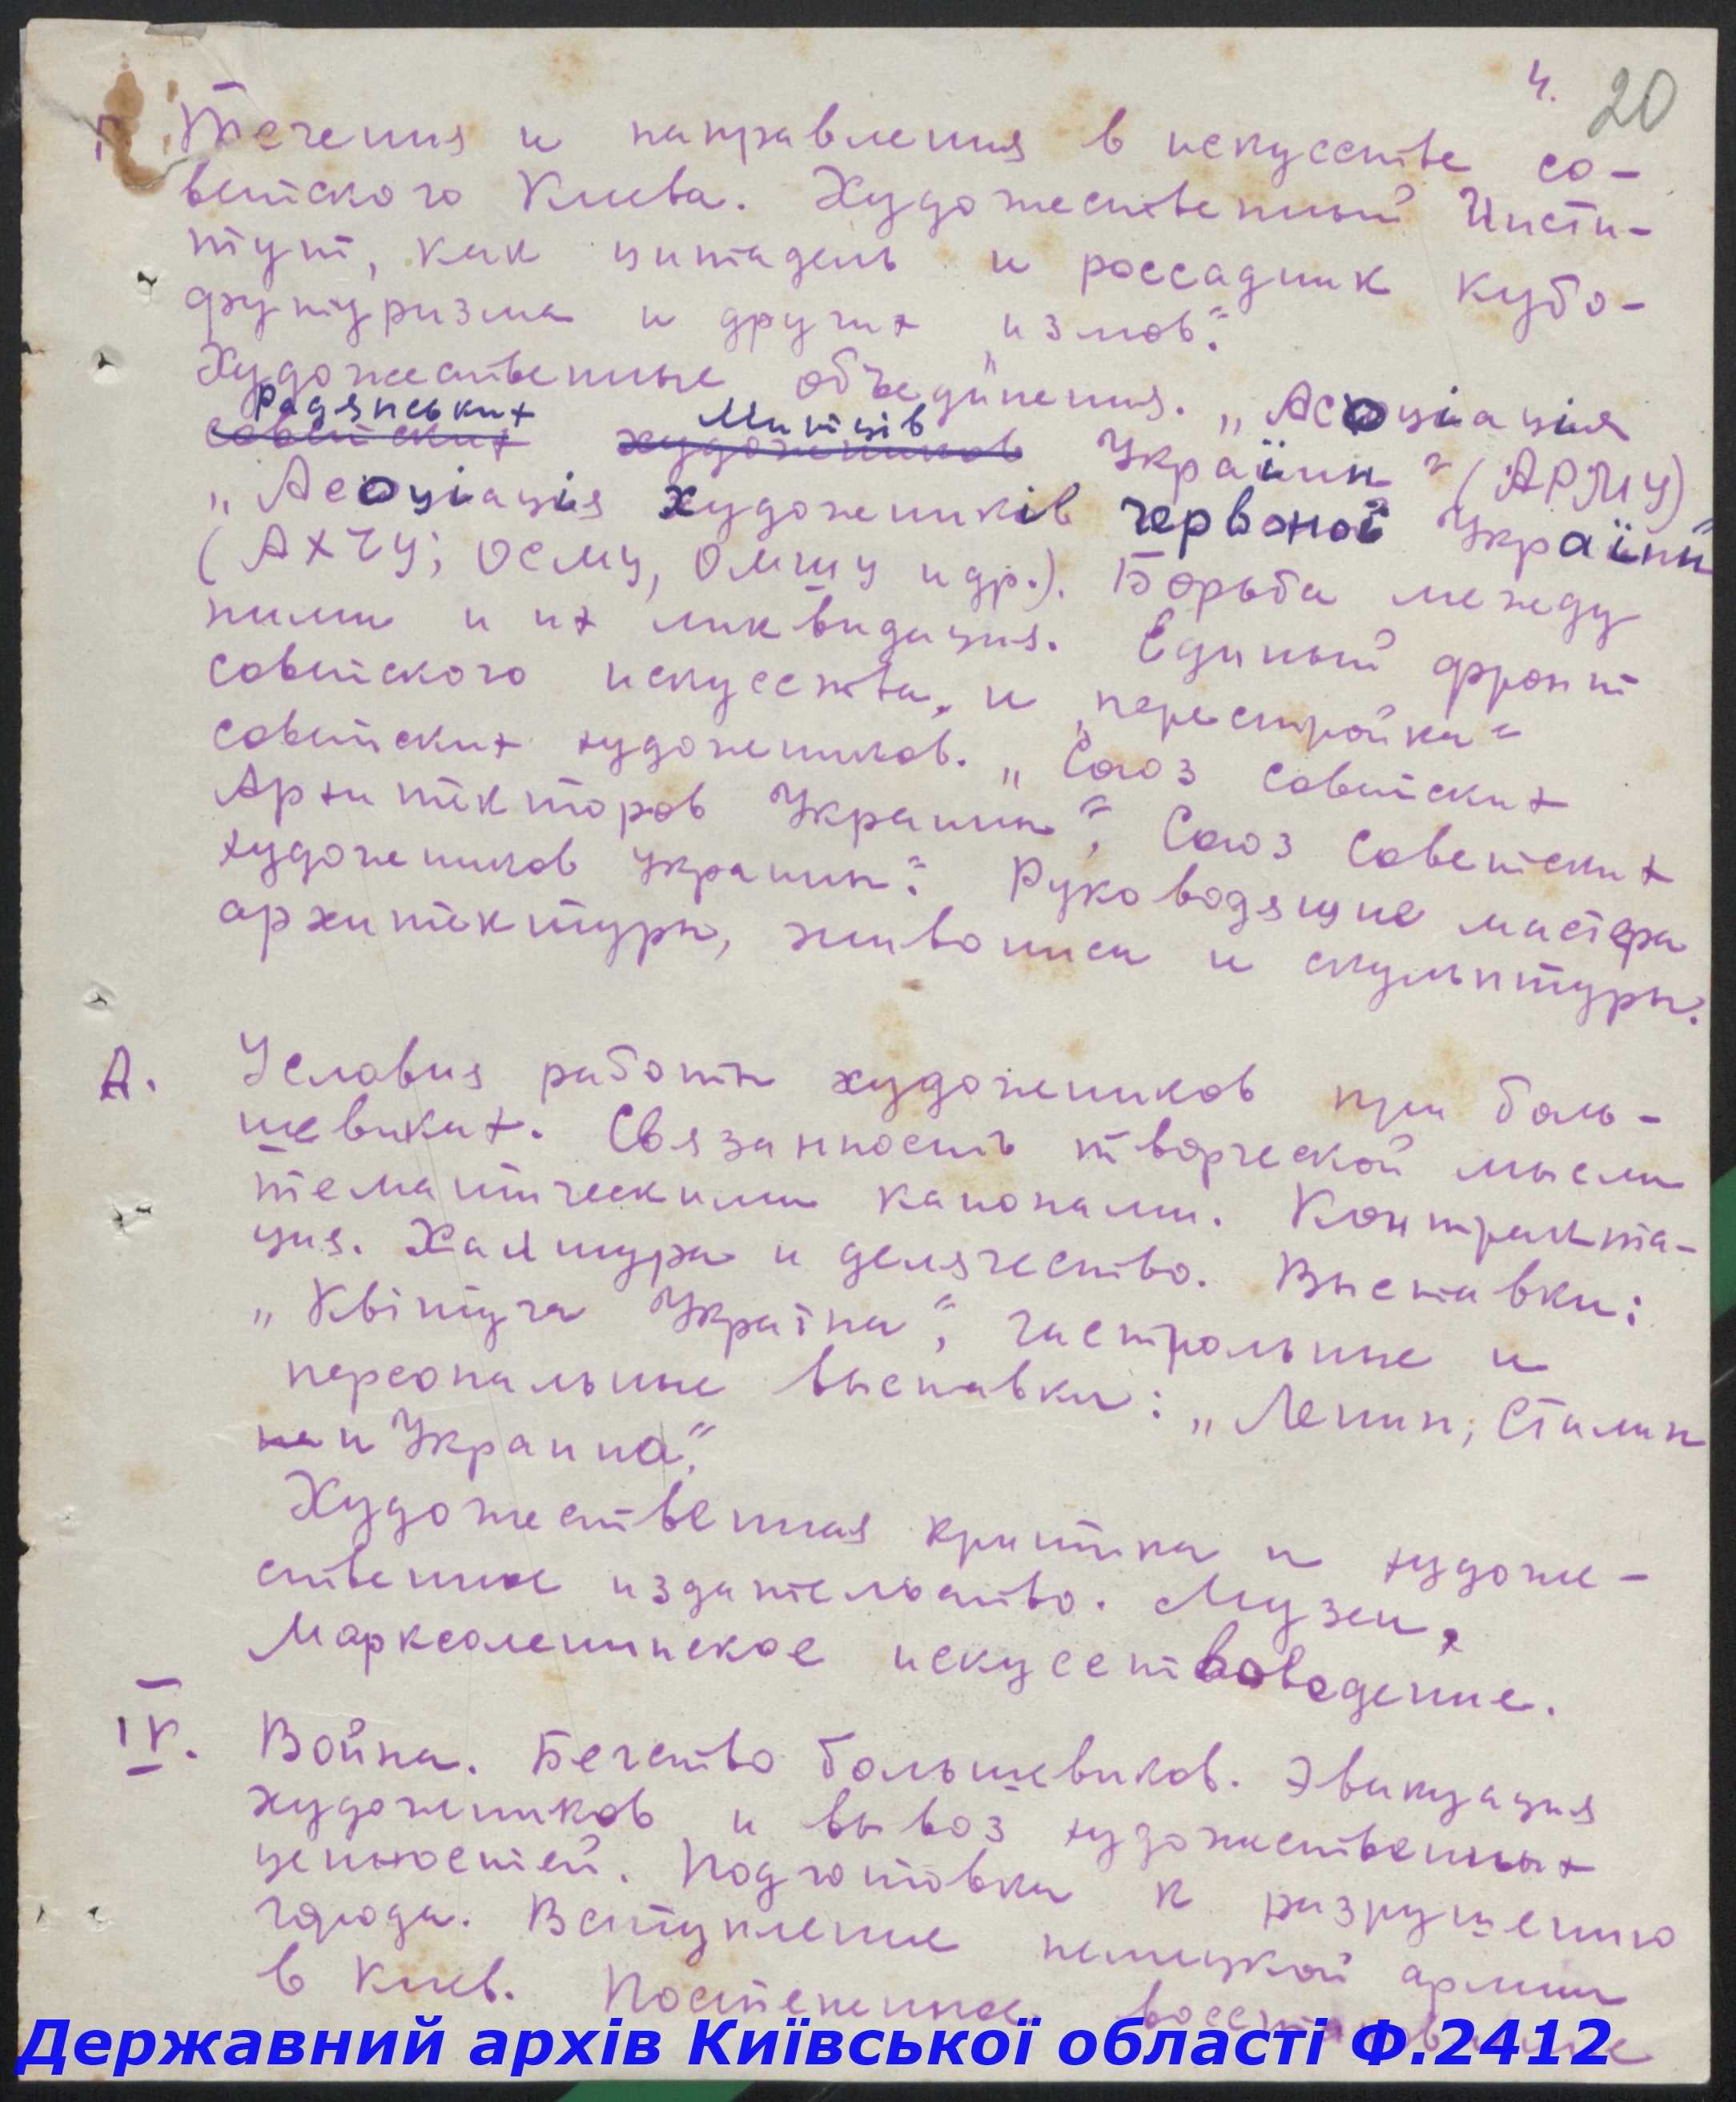 4.
20
Г. Течения и направления в искусстве со-
ветского Киева. Художественный Инсти-
тут, как цитадель и россадник кубо-
футуризма и других „измов“.
Художественные объединения. „Асоціація
радянських Митців
советских художников України“ (АРМУ)
„Асоціація художників червоної України
(АХЧУ; ОСМУ, Омшу и др.). Борьба между
ними и их ликвидация. Единый фронт
советского искусства, и „перестройка“
советских художников. „Союз советских
Архитекторов Украины“, Союз Советских
художников Украины“. Руководящие мастера
архитектуры, живописи и скульптуры.
Д. Условия работы художников при боль-
шевиках. Связанность творческой мысли
тематическими канонами. Контракта-
ция. Халтура и делячество. Выставки:
„Квітуча Україна“, гастрольные и
персональные выставки: „Ленин, Сталин
на и Украина“.
Художественная критика и художе-
ственное издательство. Музеи,
Марксоленинское искусствоведение.
IV. Война. Бегство большевиков. Эвакуация
художников и вывоз художественных
ценностей. Подготовка к разрушению
города. Вступление немецкой армии
в Киев. Постепенное восстановление
Державний архів Київської області Ф.2412